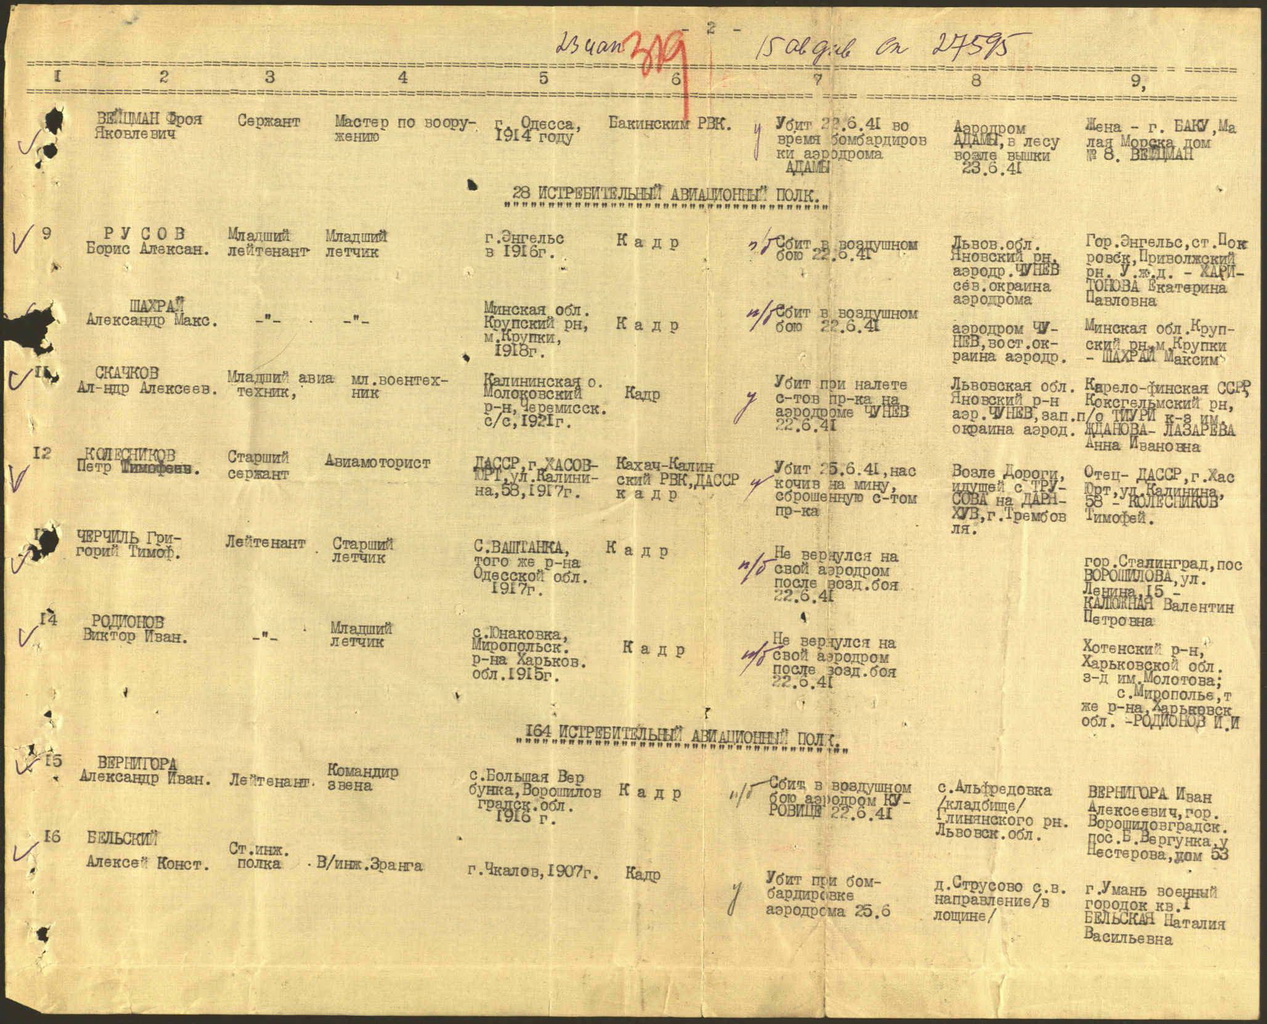 - 2 -
23 иап 319 15 авдив вх 27595
I 2 3 4 5 6 7 8 9,
ВЕЙЦМАН Фроя Яковлевич
Сержант
Мастер по воору-
жению
г. Одесса,
1914 году
Бакинским РВК.
у
Убит 22.6.41 во
время бомбардиров
ки аэродрома
АДАМЫ
Аэродром
АДАМЫ,в лесу
возле вышки
23.6.41
Жена - г. БАКУ,Ма
лая Морска дом
№ 8. ВЕЙЦМАН
28 ИСТРЕБИТЕЛЬНЫЙ АВИАЦИОННЫЙ ПОЛК.
9
Р У С О В
Борис Алексан.
Младший
лейтенант
Младший
летчик
г.Энгельс
в 1916г.
К а д р
п/б
Сбит в воздушном
бою 22.6.41
Львов.обл.
Яновский рн,
аэродр.ЧУНЕВ
сев.окраина
аэродрома
Гор.Энгельс,ст.Пок
ровск,Приволжский
рн. У.ж.д. - ХАРИ-
ТОНОВА Екатерина
Павловна
ШАХРАЙ
Александр Макс.
-"-
-"-
Минская обл.
Крупский рн,
м.Крупки,
1918г.
К а д р
п/б
Сбит в воздушном
бою 22.6.41
аэродром ЧУ-
НЕВ,вост.ок-
раина аэродр.
Минская обл.Круп-
ский рн,м.Крупки
- ШАХРАЙ Максим
11
СКАЧКОВ
Ал-ндр Алексеев.
Младший авиа
техник,
мл.воентех-
ник
Калининская о.
Молоковский
р-н,Черемисск.
с/с,1921г.
Кадр
у
Убит при налете
с-тов пр-ка на
аэродроме ЧУНЕВ
22.6.41
Львовская обл.
Яновский р-н
аэр.ЧУНЕВ,зап.
окраина аэрод.
Карело-финская ССРР,
Коксгельмский рн,
п/о ТИУРИ к-з им.
ЖДАНОВА- ЛАЗАРЕВА
Анна Ивановна
12
КОЛЕСНИКОВ
Петр Тимофеев.
Старший
сержант
Авиамоторист
ДАССР,г.ХАСОВ-
ЮРТ,ул.Калини-
на,58,1917г.
Кахач-Калин
ский РВК,ДАССР
к а д р
у
Убит 25.6.41,нас
кочив на мину,
сброшенную с-том
пр-ка
Возле Дороги,
идущей с ТРУ-
СОВА на ДАРИ-
ХУВ,г.Трембов
ля.
Отец- ДАССР,г.Хас
Юрт,ул.Калинина,
58 - КОЛЕСНИКОВ
Тимофей.
ЧЕРЧИЛЬ Гри-
горий Тимоф.
Лейтенант
Старший
летчик
С.ВАШТАНКА,
того же р-на
Одесской обл.
1917г.
К а д р
п/б
Не вернулся на
свой аэродром
после возд.боя
22.6.41
гор.Сталинград,пос
ВОРОШИЛОВА,ул.
Ленина,15 -
КАЛЮЖНАЯ Валентин
Петровна
14
РОДИОНОВ
Виктор Иван.
-"-
Младший
летчик
с.Юнаковка,
Миропольск.
р-на Харьков.
обл.1915г.
К а д р
п/б
Не вернулся на
свой аэродром
после возд.боя
22.6.41
Хотенский р-н,
Харьковской обл.
з-д им.Молотова;
с.Мирополье,т
же р-на,Харьковск
обл. -РОДИОНОВ И.И
164 ИСТРЕБИТЕЛЬНЫЙ АВИАЦИОННЫЙ ПОЛК.
15
ВЕРНИГОРА
Александр Иван.
Лейтенант.
Командир
звена
с.Большая Вер
бунка,Ворошилов
градск.обл.
1916 г.
К а д р
п/б
Сбит в воздушном
бою аэродром КУ-
РОВИЦЕ 22.6.41
с.Альфредовка
/кладбище/
Глинянского рн.
Львовск.обл.
ВЕРНИГОРА Иван
Алексеевич,гор.
Ворошиловградск.
пос.Б.Вергунка,у
Нестерова,дом 53
16
БЕЛЬСКИЙ
Алексей Конст.
Ст.инж.
полка
В/инж.3ранга
г.Чкалов,1907г.
Кадр
у
Убит при бом-
бардировке
аэродрома 25.6
д.Струсово с.в.
направление/в
лощине/
г.Умань военный
городок кв.I
БЕЛЬСКАЯ Наталия
Васильевна